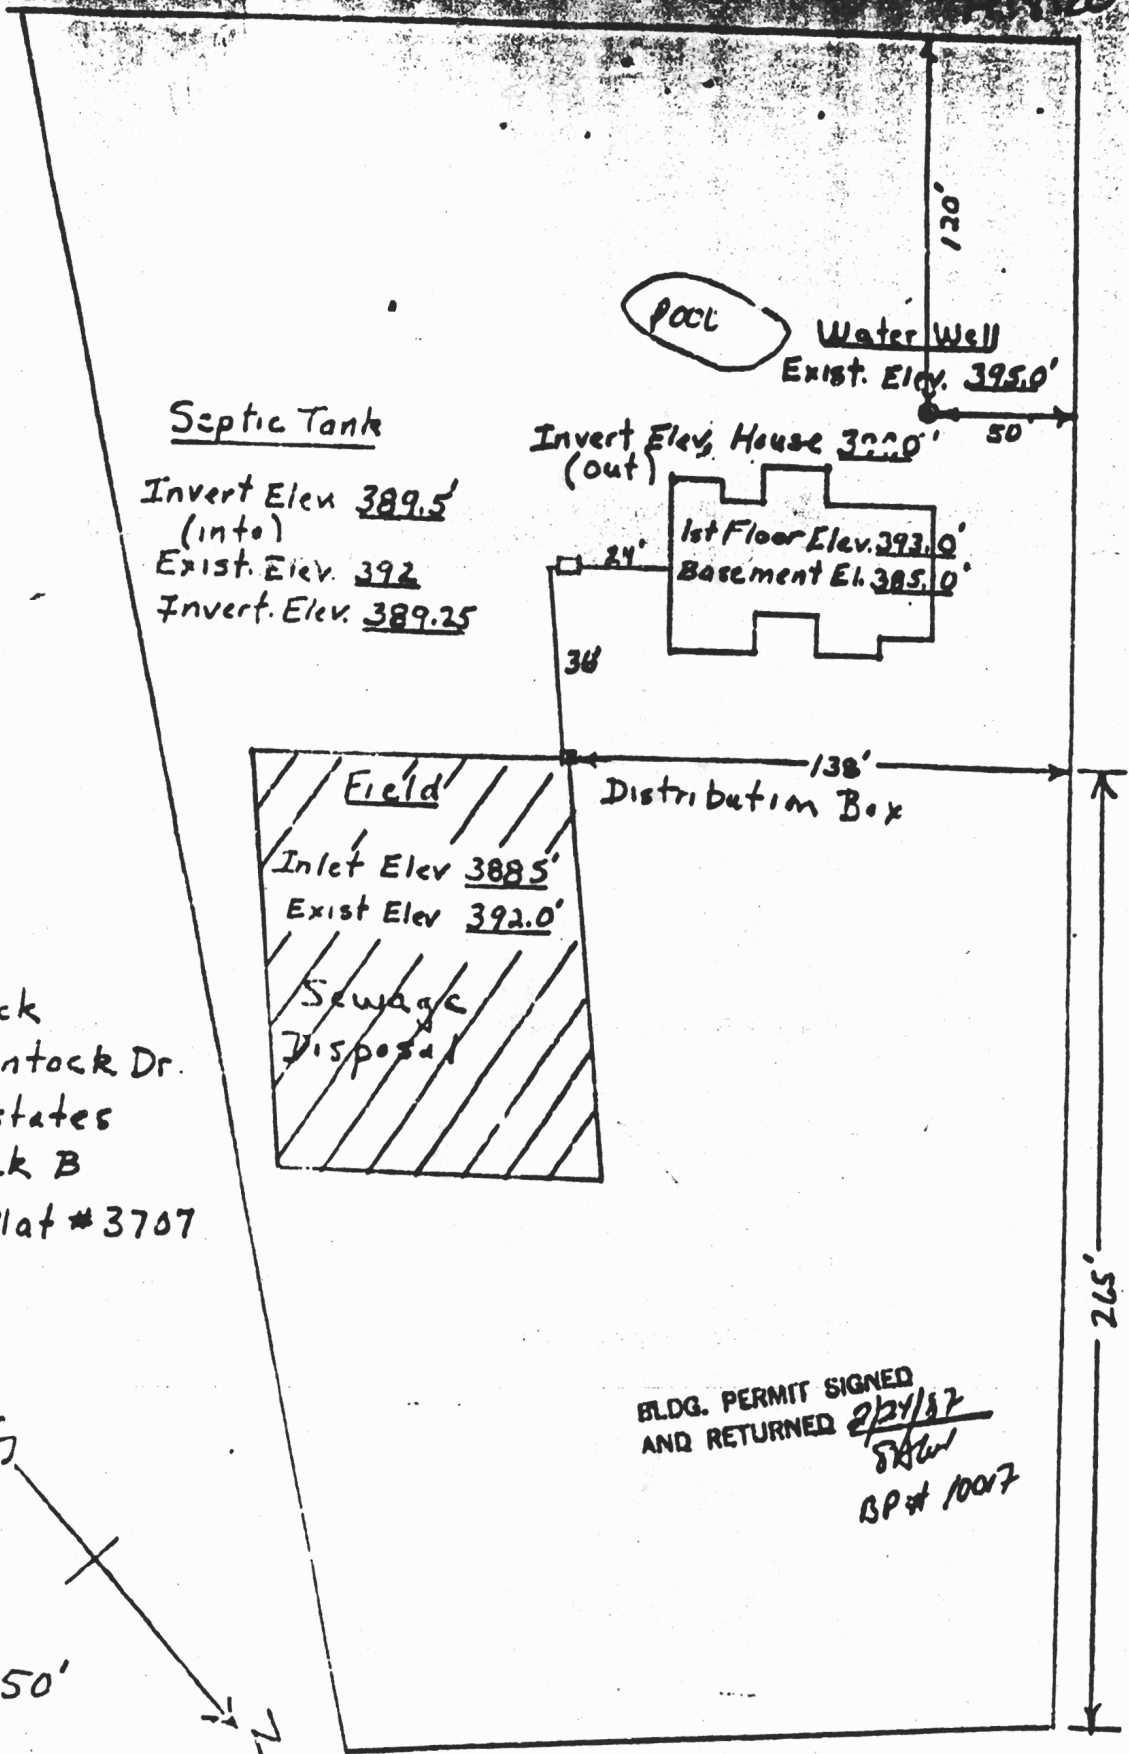 120'
POOL
Water Well
Exist. Elev. 395.0'
50'
Septic Tank
Invert Elev. 389.5'
(into)
Exist. Elev. 392
Invert. Elev. 389.25
Invert Elev, House
(out)
1st Floor Elev. 393.0'
Basement El. 385.0'
24'
138'
Distribution Box
Field
Inlet Elev 388.5'
Exist Elev 392.0'
Sewage
Disposal
ck
ntock Dr.
states
k B
Plat #3707
265'
BLDG. PERMIT SIGNED
AND RETURNED 2/24/87
BP# 10017
S
50'
N